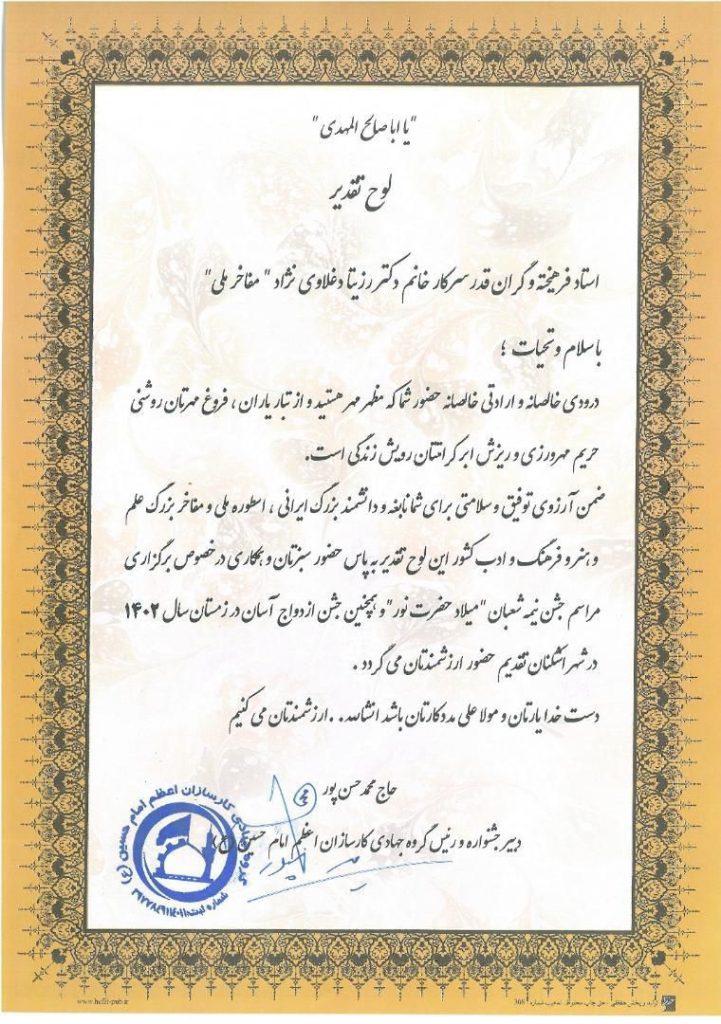 "یا ابا صالح المهدی"
لوح تقدیر
استاد فرهیخته و گران قدر سرکار خانم دکتر رزیتا دغلاوی نژاد "مفاخر ملی"
با سلام و تحیات ؛
درودی خالصانه و ارادتی خالصانه حضور شما که مظهر مهر هستید و از تبار یاران ، فروغ مهرتان روشنی
حریم مهرورزی و ریزش ابر کرامتتان رویش زندگی است.
ضمن آرزوی توفیق و سلامتی برای شما نابغه و دانشمند بزرگ ایرانی ، اسطوره ملی و مفاخر بزرگ علم
و هنر و فرهنگ و ادب کشور این لوح تقدیر به پاس حضور سبزتان و همکاری در خصوص برگزاری
مراسم جشن نیمه شعبان "میلاد حضرت نور" و همچنین جشن ازدواج آسان در زمستان سال ۱۴۰۲
در شهر اشکنان تقدیم حضور ارزشمندتان می گردد .
دست خدا یارتان و مولا علی مددکارتان باشد انشاالله . . ارزشمندتان می کنیم
حاج محمد حسن پور
دبیر جشنواره و رئیس گروه جهادی کارسازان اعظم امام حسین (ع)
گروه جهادی کارسازان اعظم امام حسین (ع)
شماره ثبت:
www.hefit-pub.ir